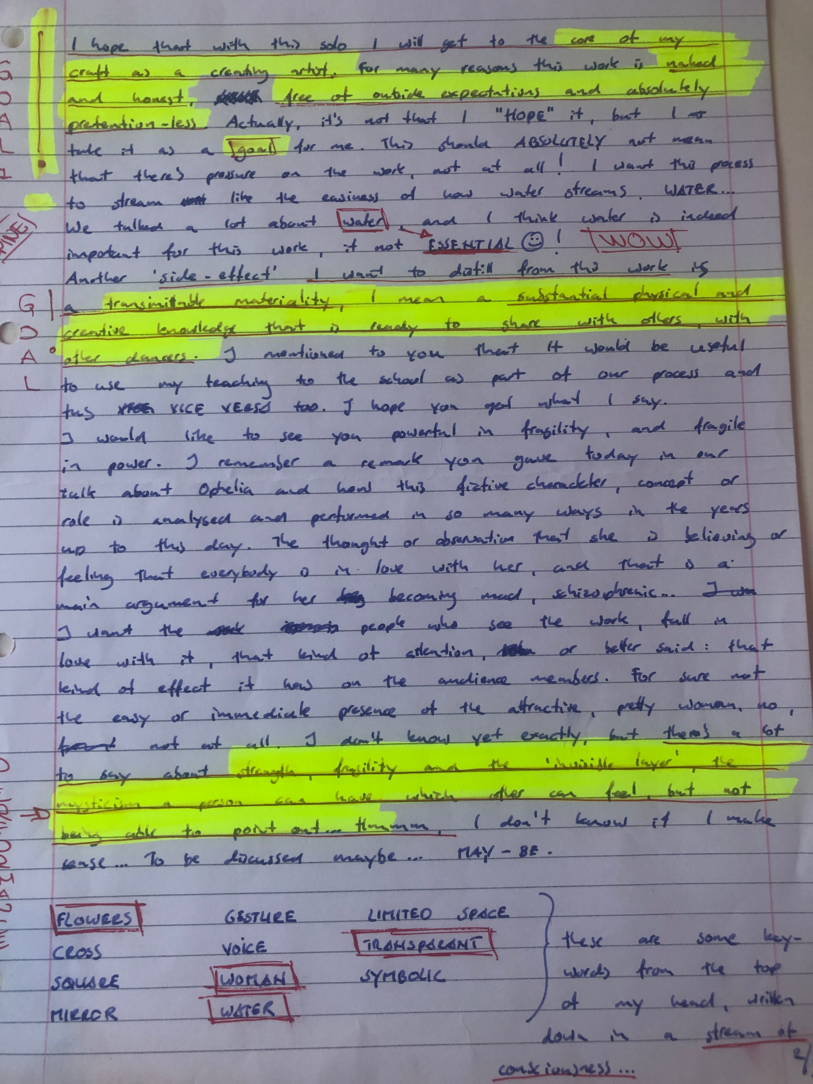 I hope that with this solo I will get to the core of my
craft as a creating artist. For many reasons this work is naked
and honest, free of outside expectations and absolutely
pretention-less. Actually, it's not that I "HOPE" it, but I
take it as a goal for me. This should ABSOLUTELY not mean
that there's pressure on the work, not at all! I want this process
to stream like the easiness of how water streams. WATER...
We talked a lot about water, and I think water is indeed
important for this work, if not ESSENTIAL ☺! WOW
Another 'side-effect' I want to distill from this work is
a transmittable materiality, I mean a substantial physical and
creative knowledge that is ready to share with others, with
other dancers. I mentioned to you that it would be useful
to use my teaching to the school as part of our process and
thus VICE VERSA too. I hope you get what I say.
I would like to see you powerful in fragility, and fragile
in power. I remember a remark you gave today in our
talk about Ophelia and how this fictive charackter, concept or
role is analysed and performed in so many ways in the years
up to this day. The thought or observation that she is believing or
feeling that everybody is in love with her, and that is a
main argument for her becoming mad, schizophrenic...
I want the people who see the work, fall in
love with it, that kind of attention, or better said: that
kind of effect it has on the audience members. For sure not
the easy or immediate presence of the attractive, pretty woman, no,
not at all. I don't know yet exactly, but there's a lot
to say about strength, fragility and the 'invisible layer', the
mysticism a person can have which other can feel, but not
being able to point out... Hmmm, I don't know if I make
sense... To be discussed maybe... MAY-BE.
FLOWERS GESTURE LIMITED SPACE
CROSS VOICE TRANSPARANT
SQUARE WOMAN SYMBOLIC
MIRROR WATER
these are some key-
words from the top
of my head, written
down in a stream of
consciousness...
2/
GOAL
GOAL